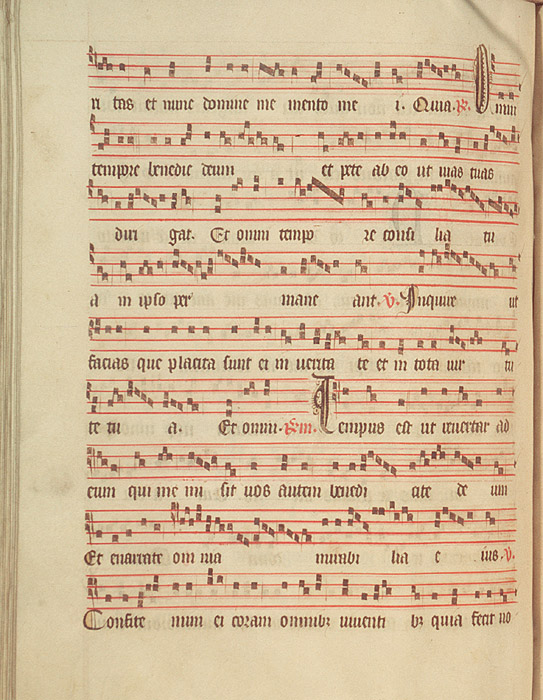 ri tas et nunc domine me mento me i. Quia. R. Omni
tempore benedic deum et pete ab eo ut uias tuas
diri gat. Et omni tempo re consi lia tu
a in ipso per mane ant. V. Inquire ut
facias que placita sunt ei in uerita te et in tota uir tu
te tu a. Et omni. Tempus est ut reuertar ad
eum qui me mi sit uos autem benedi cite de um
Et enarrate om nia mirabi lia e ius. V.
Confite mini ei coram omnibz uiuenti bz quia fecit uo